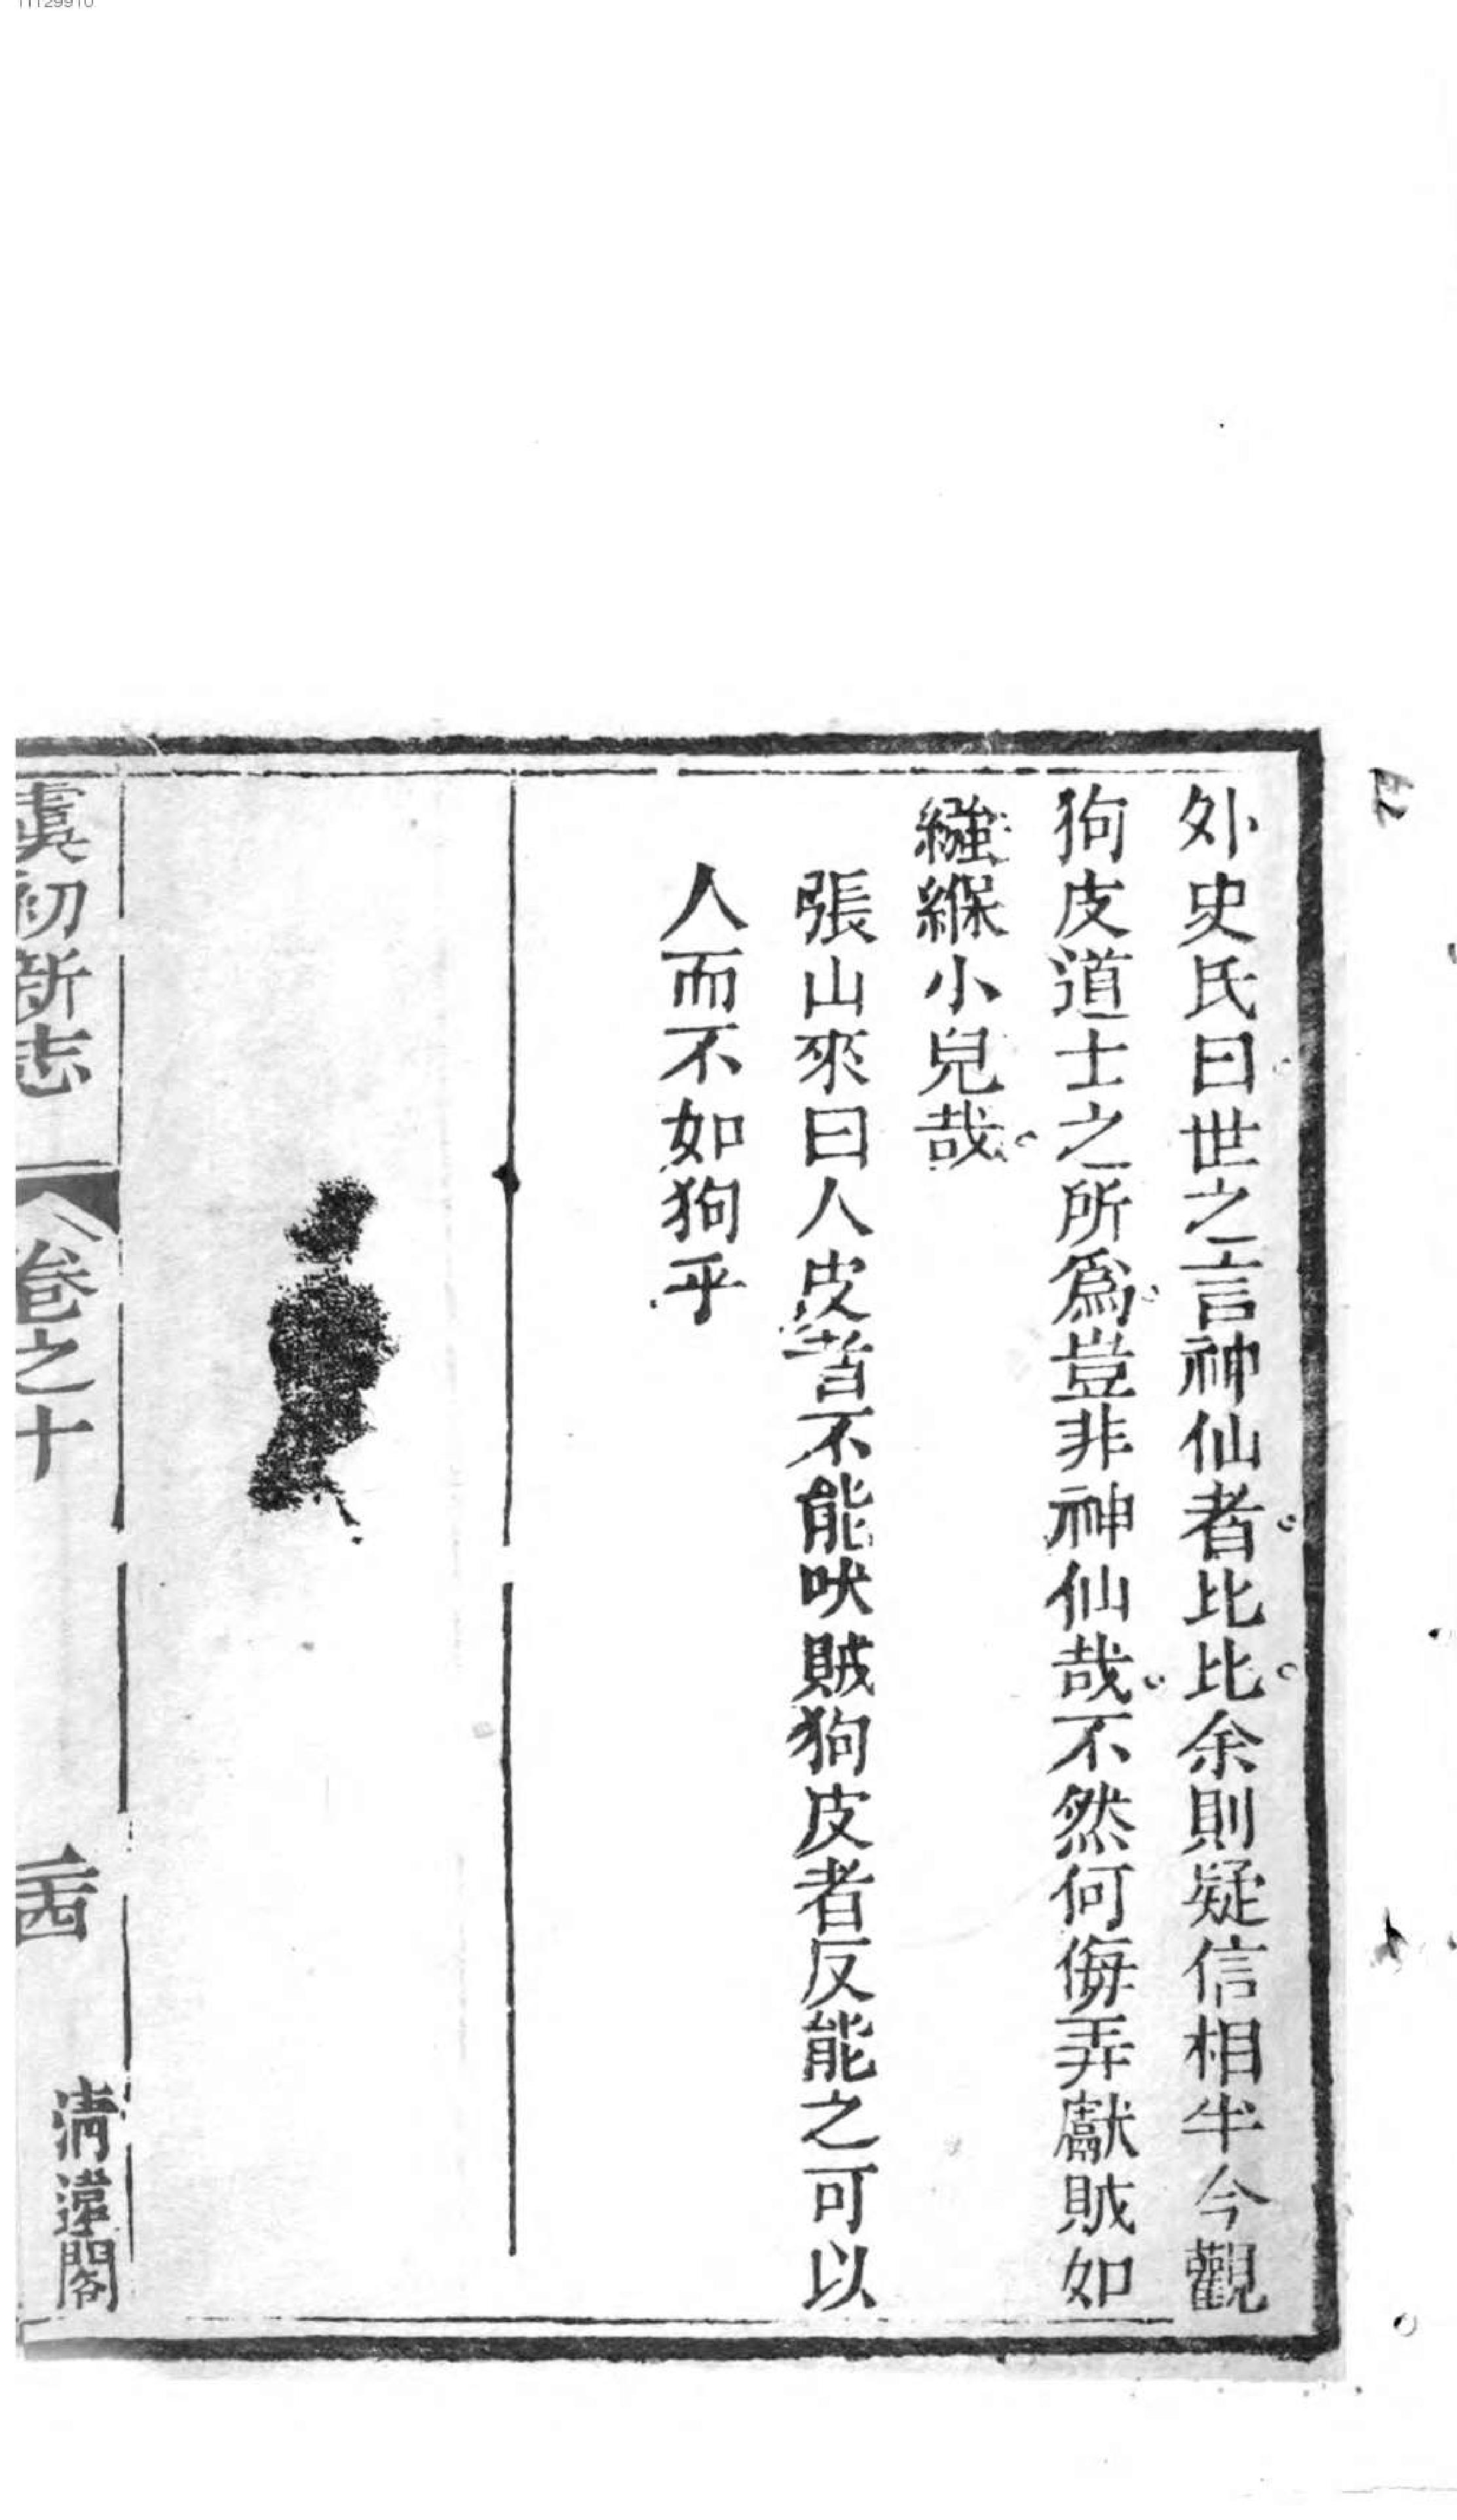 外史氏曰世之言神仙者比比余則疑信相半今觀
狗皮道士之所爲豈非神仙哉不然何侮弄獻賊如
繦緥小兒哉
張山來曰人皮者不能吠賊狗皮者反能之可以
人而不如狗乎
虞初新志
卷之十
清遠閣